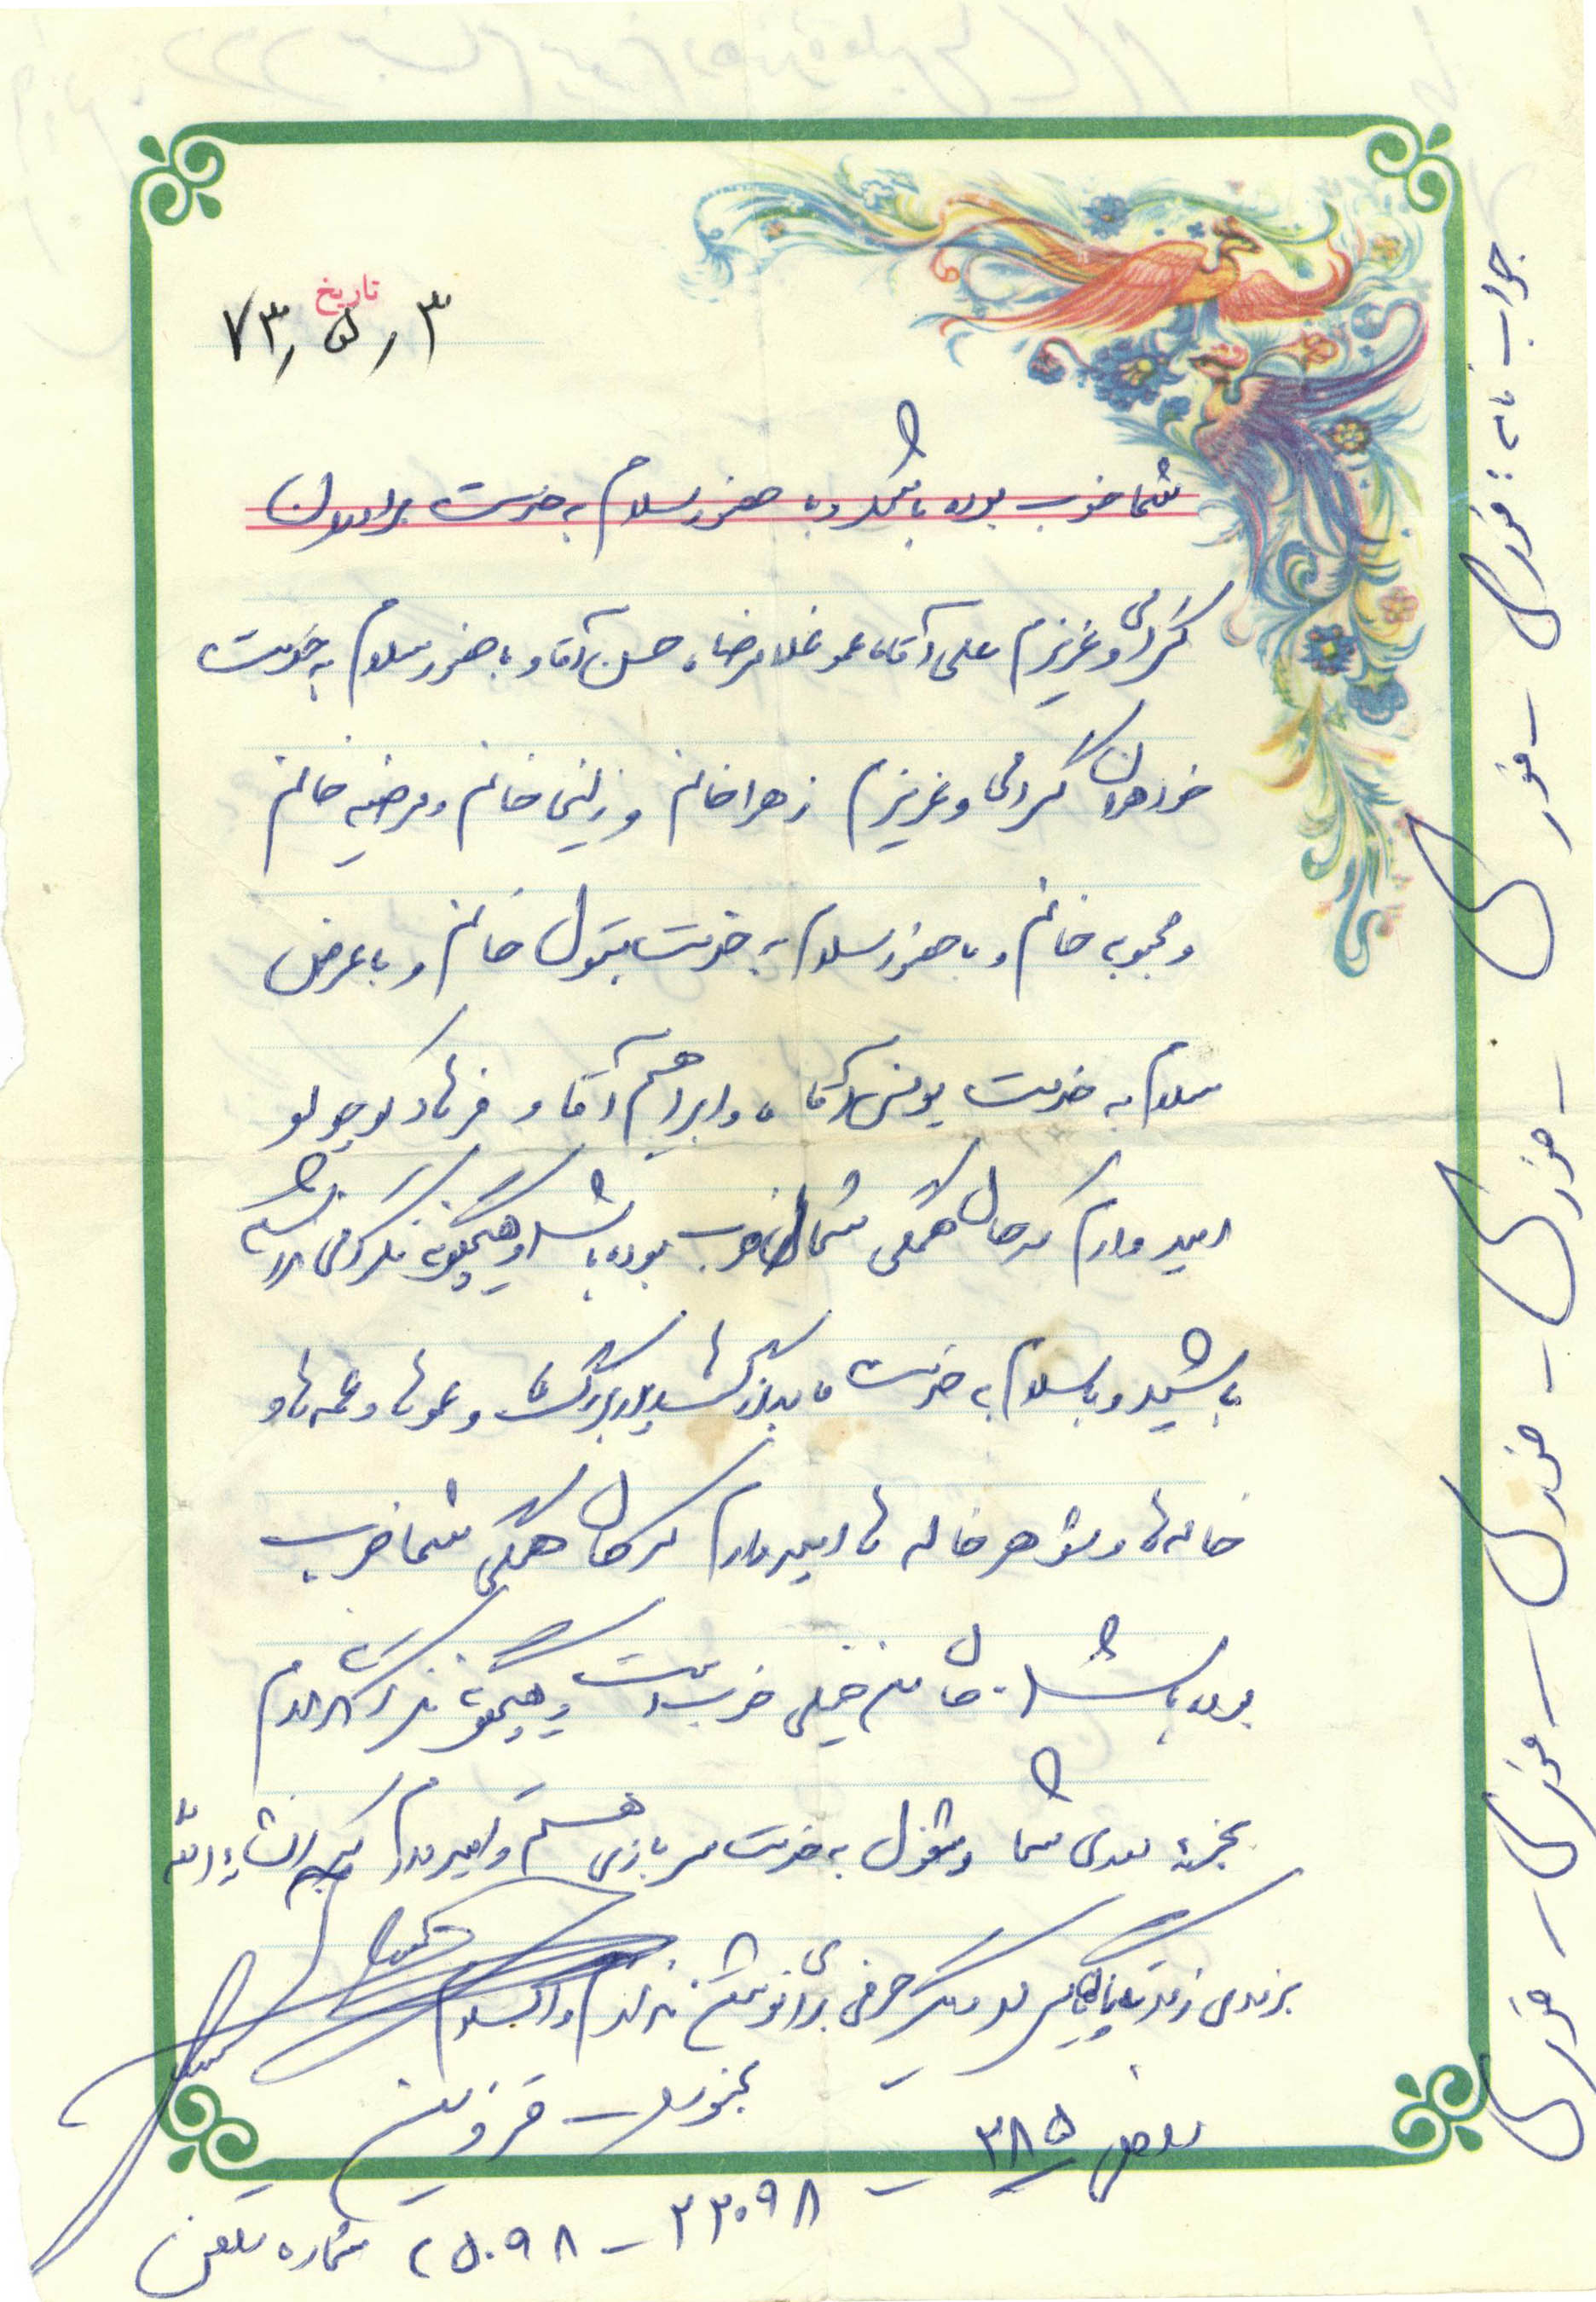 تاریخ
۷۳٫۵٫۳
شما خوب بوده باشد و با حضور سلام به خدمت برادران
گرامی و عزیزم علی آقا، عمو غلامرضا، حسن آقا و با حضور سلام به خدمت
خواهران گرامی و عزیزم زهرا خانم و زینب خانم و مرضیه خانم
و محبوبه خانم و با حضور سلام به خدمت بتول خانم و با عرض
سلام به خدمت یونس آقا، و ابراهیم آقا و فرهاد کوچولو
امیدوارم که حال همگی شما خوب بوده باشد و هیچگونه نگرانی نداشته
باشید و با سلام به خدمت مادربزرگ پدربزرگ و عموها و عمه ها و
خاله ها و شوهر خاله ها امیدوارم که حال همگی شما خوب
بوده باشد. حال من خیلی خوب است و هیچگونه نگرانی ندارم
بجزء دوری شما و مشغول به خدمت سربازی هستم و امیدوارم که انشاء الله
بزودی زود دیگر حرفی برای نوشتن ندارم والسلام
بجنورد - قزوین
داخلی ۳۸۵ - ۲۳۰۹۸ - ۲۵۰۹۸ شماره تلفن
جواب نامه: فوری - فوری - فوری - فوری - فوری - فوری